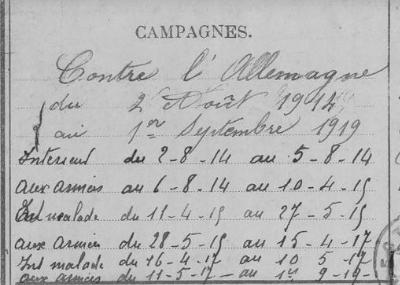 CAMPAGNES.
Contre l'Allemagne
du 2 Août 1914
au 1er Septembre 1919
Intérieur du 2-8-14 au 5-8-14
aux armées au 6-8-14 au 10-4-15
Int malade du 11-4-15 au 27-5-15
aux armées du 28-5-15 au 15-4-17
Int malade du 16-4-17 au 10 5-17
aux armées du 11-5-17 - au 1er 9-19-